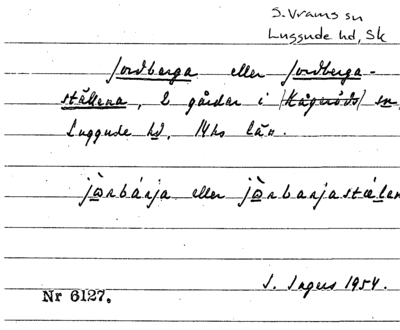 S. Vrams sn
Luggude hd, Sk
Jordberga eller Jordberga-
ställena, 2 gårdar i /Kågeröds/ sn,
Luggude hd. Mhs län.
eller
J. Ingers 1954.
Nr 6127.